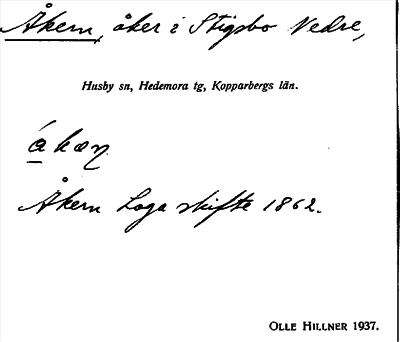 Åkern, åker i Stigsbo Nedre,
Husby sn, Hedemora tg, Kopparbergs län.
Åkern Laga skifte 1862.
OLLE HILLNER 1937.